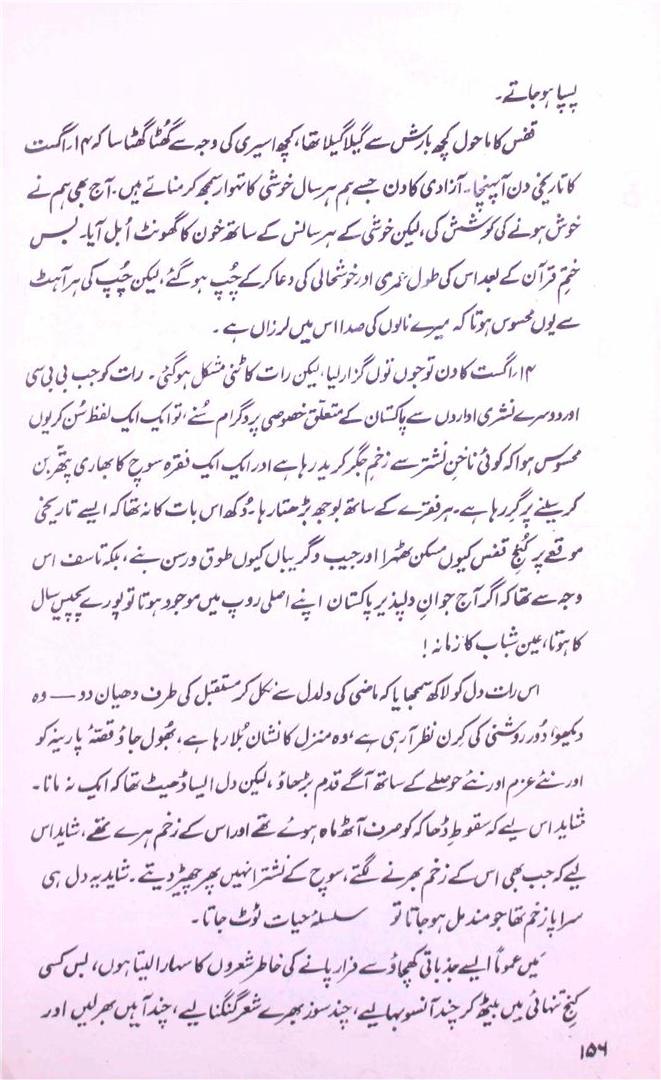 پسپا ہو جاتے۔
قفس کا ماحول کچھ بارش سے گیلا گیلا تھا، کچھ اسیری کی وجہ سے گھُٹا گھُٹا سا کہ ۱۴۔اگست
کا تاریخی دن آپہنچا۔ آزادی کا دن جسے ہم ہر سال خوشی کا تہوار سمجھ کر مناتے ہیں۔ آج بھی ہم نے
خوش ہونے کی کوشش کی، لیکن خوشی کے ہر سانس کے ساتھ خون کا گھونٹ اُبل آیا۔ بس
ختمِ قرآن کے بعد اس کی طولِ عمری اور خوشحالی کی دعا کر کے چُپ ہو گئے، لیکن چُپ کی ہر آہٹ
سے یوں محسوس ہوتا کہ میرے نالوں کی صدا اس میں لرزاں ہے۔
۱۴۔اگست کا دن تو جوں توں گزار لیا، لیکن رات کاٹنی مشکل ہو گئی۔ رات کو جب بی بی سی
اور دوسرے نشری اداروں سے پاکستان کے متعلق خصوصی پروگرام سُنے، تو ایک ایک لفظ سُن کر یوں
محسوس ہوا کہ کوئی ناخنِ نشتر سے زخمِ جگر کرید رہا ہے اور ایک ایک فقرہ سوچ کا بھاری پتھر بن
کر سینے پر گِر رہا ہے۔ ہر فقرے کے ساتھ بوجھ بڑھتا رہا۔ دُکھ اس بات کا نہ تھا کہ ایسے تاریخی
موقعے پر کُنجِ قفس کیوں مسکن ٹھہرا اور جیب و گریباں کیوں طوق و رسن بنے، بلکہ تاسف اس
وجہ سے تھا کہ اگر آج جوانِ دلپذیر پاکستان اپنے اصلی روپ میں موجود ہوتا تو پورے پچیس سال
کا ہوتا، عین شباب کا زمانہ!
اس رات دل کو لاکھ سمجھایا کہ ماضی کی دلدل سے نکل کر مستقبل کی طرف دھیان دو — وہ
دیکھو! دُور روشنی کی کِرن نظر آرہی ہے، وہ منزل کا نشان بُلا رہا ہے، بھُول جاؤ قصۂ پارینہ کو
اور نئے عزم اور نئے حوصلے کے ساتھ آگے قدم بڑھاؤ، لیکن دل ایسا ڈھیٹ تھا کہ ایک نہ مانا۔
شاید اس لیے کہ سقوطِ ڈھاکہ کو صرف آٹھ ماہ ہوئے تھے اور اس کے زخم ہرے تھے، شاید اس
لیے کہ جب بھی اس کے زخم بھرنے لگتے، سوچ کے نشتر انہیں پھر چھیڑ دیتے۔ شاید یہ دل ہی
سراپا زخم تھا جو مندمل ہو جاتا تو سلسلۂ حیات ٹوٹ جاتا۔
میں عموماً ایسے جذباتی کھچاؤ سے فرار پانے کی خاطر شعروں کا سہارا لیتا ہوں، بس کسی
کنجِ تنہائی میں بیٹھ کر چند آنسو بہا لیے، چند سوز بھرے شعر گنگنا لیے، چند آہیں بھر لیں اور
۱۵۶